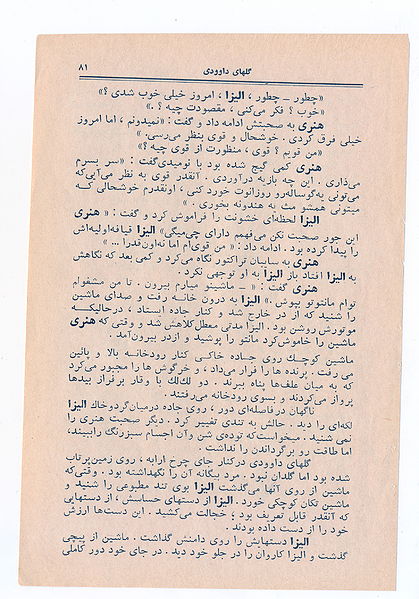 گلهای داوودی
۸۱
«چطور ــ چطور ، الیزا ، امروز خیلی خوب شدی ؟»
«خوب ؟ فکر می‌کنی ، مقصودت چیه ؟ .»
هنری به صحبتش ادامه داد و گفت : «نمیدونم ، اما امروز
خیلی فرق کردی . خوشحال و قوی بنظر می‌رسی.»
«من قویم ؟ قوی ، منظورت از قوی چیه ؟»
هنری کمی گیج شده بود با نومیدی‌گفت : «سر بسرم
می‌ذاری . این چه بازیه درآوردی . آنقدر قوی به نظر می‌آیی‌که
می‌تونی یه‌گوساله‌رو روزانوت خورد کنی ، اونقدرم خوشحالی کـه
میتونی همشو مث یه هندونه بخوری . »
الیزا لحظه‌ای خشونت را فراموش کرد و گفت : « هنری
این جور صحبت نکن می‌فهمم دارای چی‌میگی» الیزا قیافه‌اولیه‌اش
را پیدا کرده بود . ادامه داد : «من قوی‌ام اما نه‌اون‌قدرا ... »
هنری به سایبان تراکتور نگاه می‌کرد و کمی بعد که نگاهش
به الیزا افتاد باز الیزا به او توجهی نکرد .
هنری گفت : « ــ ماشینو میارم بیرون . تا من مشغولم
توام مانتوتو بپوش .» الیزا به درون خانـه رفت و صدای ماشین
را شنید که از در خارج شد و کنار جاده ایستاد ، درحالیکـه
موتورش روشن بود . الیزا مدتی معطل‌کلاهش شد و وقتی که هنری
ماشین را خاموش‌کرد مانتو را پوشید و ازدر بیرون‌آمد .
ماشین کوچك روی جـاده خاکـی کنار رودخانـه بالا و پائین
می رفت . پرنده ها را فرار می‌داد ، و خرگوش ها را مجبور می‌کرد
که به میان علف‌ها پناه ببرند . دو لك‌لك با وقار برفراز بیدها
پرواز می‌کردند و بسوی رودخانه می‌رفتند .
ناگهان درفاصله‌ای دور ، روی جاده درمیان‌گردوخاك الیزا
لکه‌ای را دید . حالش به تندی تغییر کرد . دیگر صحبت هنری را
نمی شنید . میخواست‌که توده‌ی شن وآن اجسام سبزرنگ رانبیند،
اما طاقت رو برگرداندن را نداشت .
گلهای داوودی درکنار جای چرخ ارابه ، روی زمین‌پرتاب
شده بود اما گلدان نبود . مرد بیگانه آن را نگهداشته بود . وقتی‌که
ماشین از روی آنها می‌گذشت الیزا بوی تند مطبوعی را شنید و
ماشین تکان کوچکی خورد . الیزا از دستهای حساسش ، از دستهایی
که آنقدر قابل تعریف بود ؛ خجالت می‌کشید . این دست‌ها ارزش
خود را از دست داده بودند .
الیزا دستهایش را روی دامنش گذاشت . ماشین از پیچی
گذشت و الیزا کاروان را در جلو خود دید . در جای خود دور کاملی